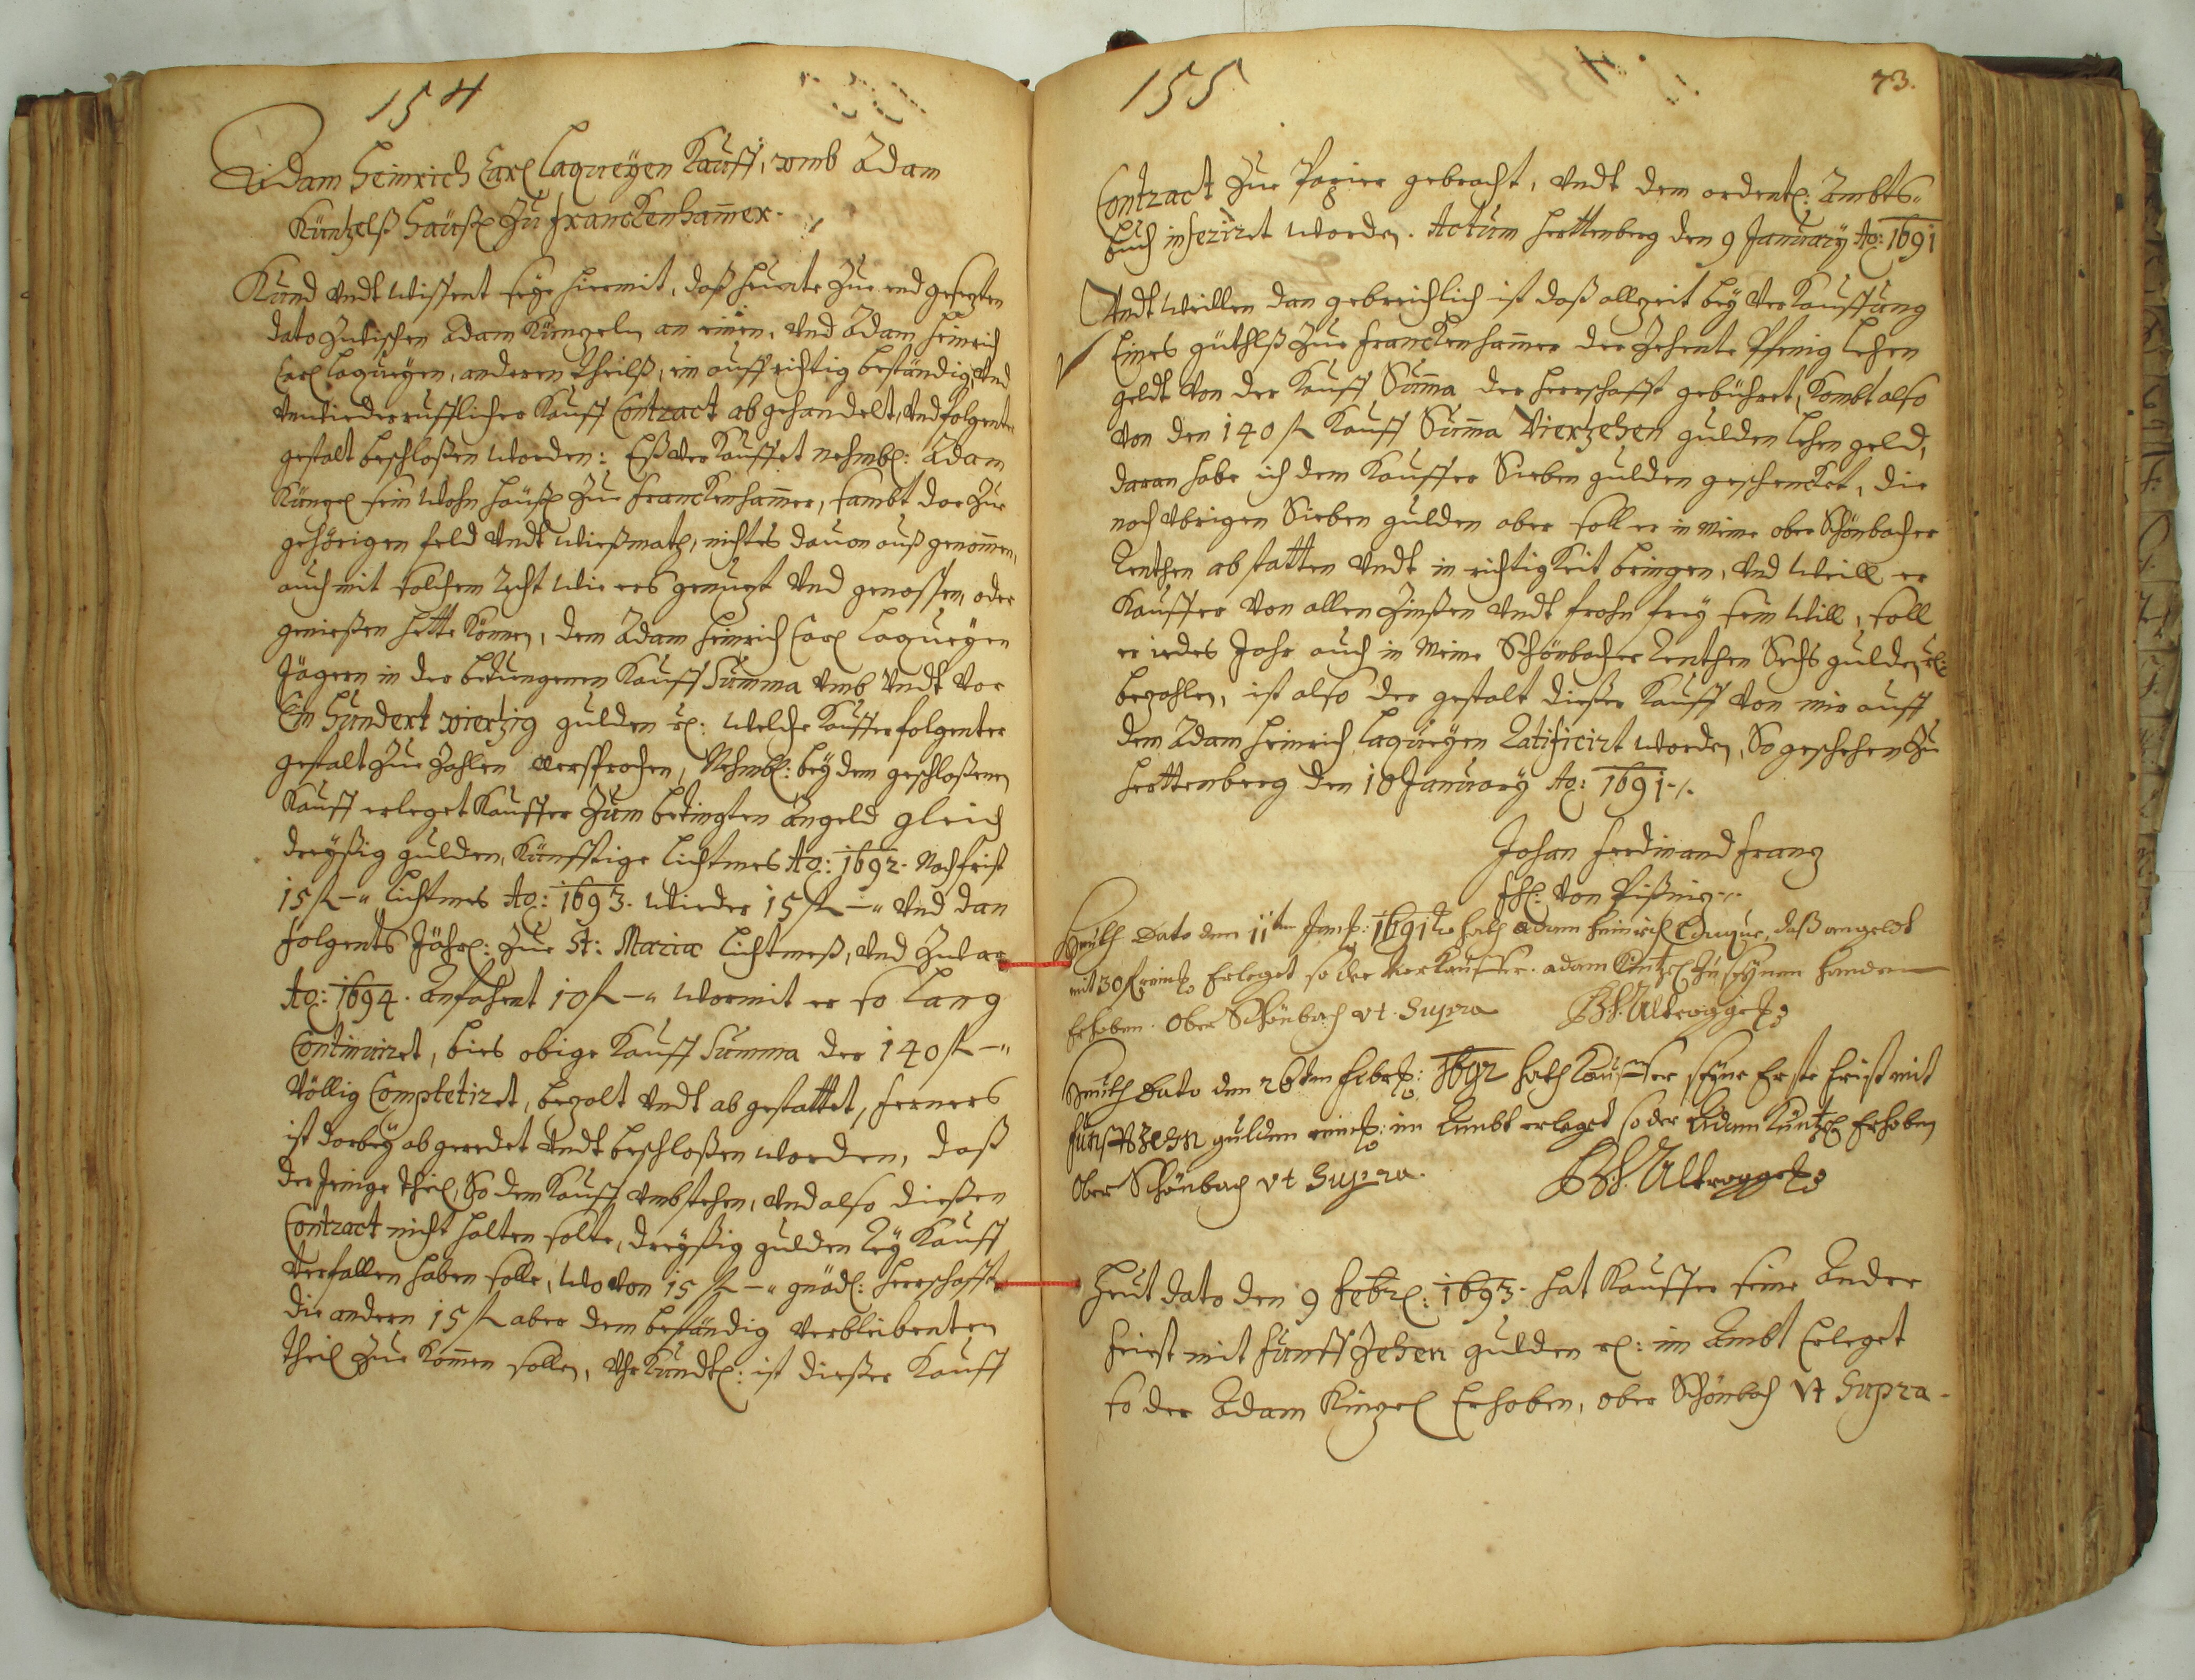 154
Adam Heinrich Carl Laqueyen Kauff, vmb Adam
Küntzelß Häußl Zu Franckenhammer.
Kund vndt wissent seye hiermit, daß heunte Zue end gesezten
dato Zwischen Adam Künzeln an einen, vnd Adam Heinrich
Carl Laqueyen, anderen theilß, ein auffrichtig beständig, vnd
vnwiederrufflicher Kauff Contract abgehandelt, vnd folgenter
gestalt beschloßen worden: Eß verkauffet nehmbl: Adam
Künzel sein wohn häußl Zue Franckenhammer, sambt dar Zue
gehörigen feld vndt wießmath, nichtes dauon auß genommen,
auch mit solchem recht wie ers genuzt vnd genossen, oder
genießen hette können, dem Adam Heinrich Carl Laqueyen
Jägern in der bedungenen Kauff Summa vmb vndt vor
Ein Hundert viertzig gulden rl: welche Kauffer folgenter
gestalt Zue Zahlen versprochen, Nehmbl: bey dem geschloßenen
Kauff erleget Kauffer Zum bedingten Angeld gleich
dreyßig gulden, Künfftige Lichtmes Ao: 1692. Nachfrist
15 fl —" Lichtmes Ao: 1693. wieder 15 fl —" vnd dan
folgents Jährl: Zue St: Mariæ Lichtmeß, vnd Zwar
Ao: 1694. Anfahent 10 fl —" wormit er so lang
Continuiret, bies obige Kauff Summa der 140 fl —"
völlig Completiret, bezalt vndt abgestattet, ferners
ist darbey abgeredet vndt beschloßen worden, daß
der Jenige theil, So dem Kauff vmbstehen, vnd also dießen
Contract nicht halten solte, dreyßig gulden Rey Kauff
verfallen haben solle, wovon 15 fl —" gnädl: Herrschafft
die andern 15 fl aber dem beständig verbleibenten
theil Zue kommen sollen, Vhrkundtl: ist dießer Kauff
155
73.
Contract Zue Papier gebracht, vndt dem ordentl: Ambts-
buch inseriret worden. Actum Harttenberg den 9 January Ao: 1691
Vndt weillen dan gebreichlich ist daß allzeit bey verkauffung
Eines güthlß Zue Franckenhammer der Zehente Pfenig Lehen
geldt von der Kauff Summa der Herrschafft gebühret, kombt also
von den 140 fl Kauff Summa viertzehen gulden Lehen geld,
daran habe ich dem Kauffer Sieben gulden geschencket, die
noch vbrigen Sieben gulden aber soll er in meine ober Schönbacher
Renthen abstatten vndt in richtigkeit bringen, vnd weill er
Kauffer von allen Zinßen vndt frohn frey sein will, soll
er iedes Jahr auch in meine Schönbacher Renthen Sechs gulden rl:
bezahlen, ist also der gestalt dießer Kauff von mir auff
dem Adam Heinrich Laqueyen Ratificirt worden, So geschehen Zu
Harttenberg den 10 January Ao: 1691./.
Johan Ferdinand Franz
frh: von Pißnig
Heuth Dato den 11ten 1691 hath adam heinrich daß angeldt
mit 30 fl Erleget so der verkauffer. adam Küntzel Zu seynen handen
Erhoben. Ober Schönbach vt. Supra
Heuth Dato den 26ten febr: 1692 hath Kauffer seyne Erste frist mit
fünffZehen gulden im Ambt erleget so der Adam Küntzel Erhoben
Ober Schönbach vt Supra.
Heut dato den 9 Febr: 1693. hat Kauffer seine Ander
friest mit fünffZehen gulden rl: im Ambt Erleget
so der Adam Kinzel Erhoben, ober Schönbach vt Supra.